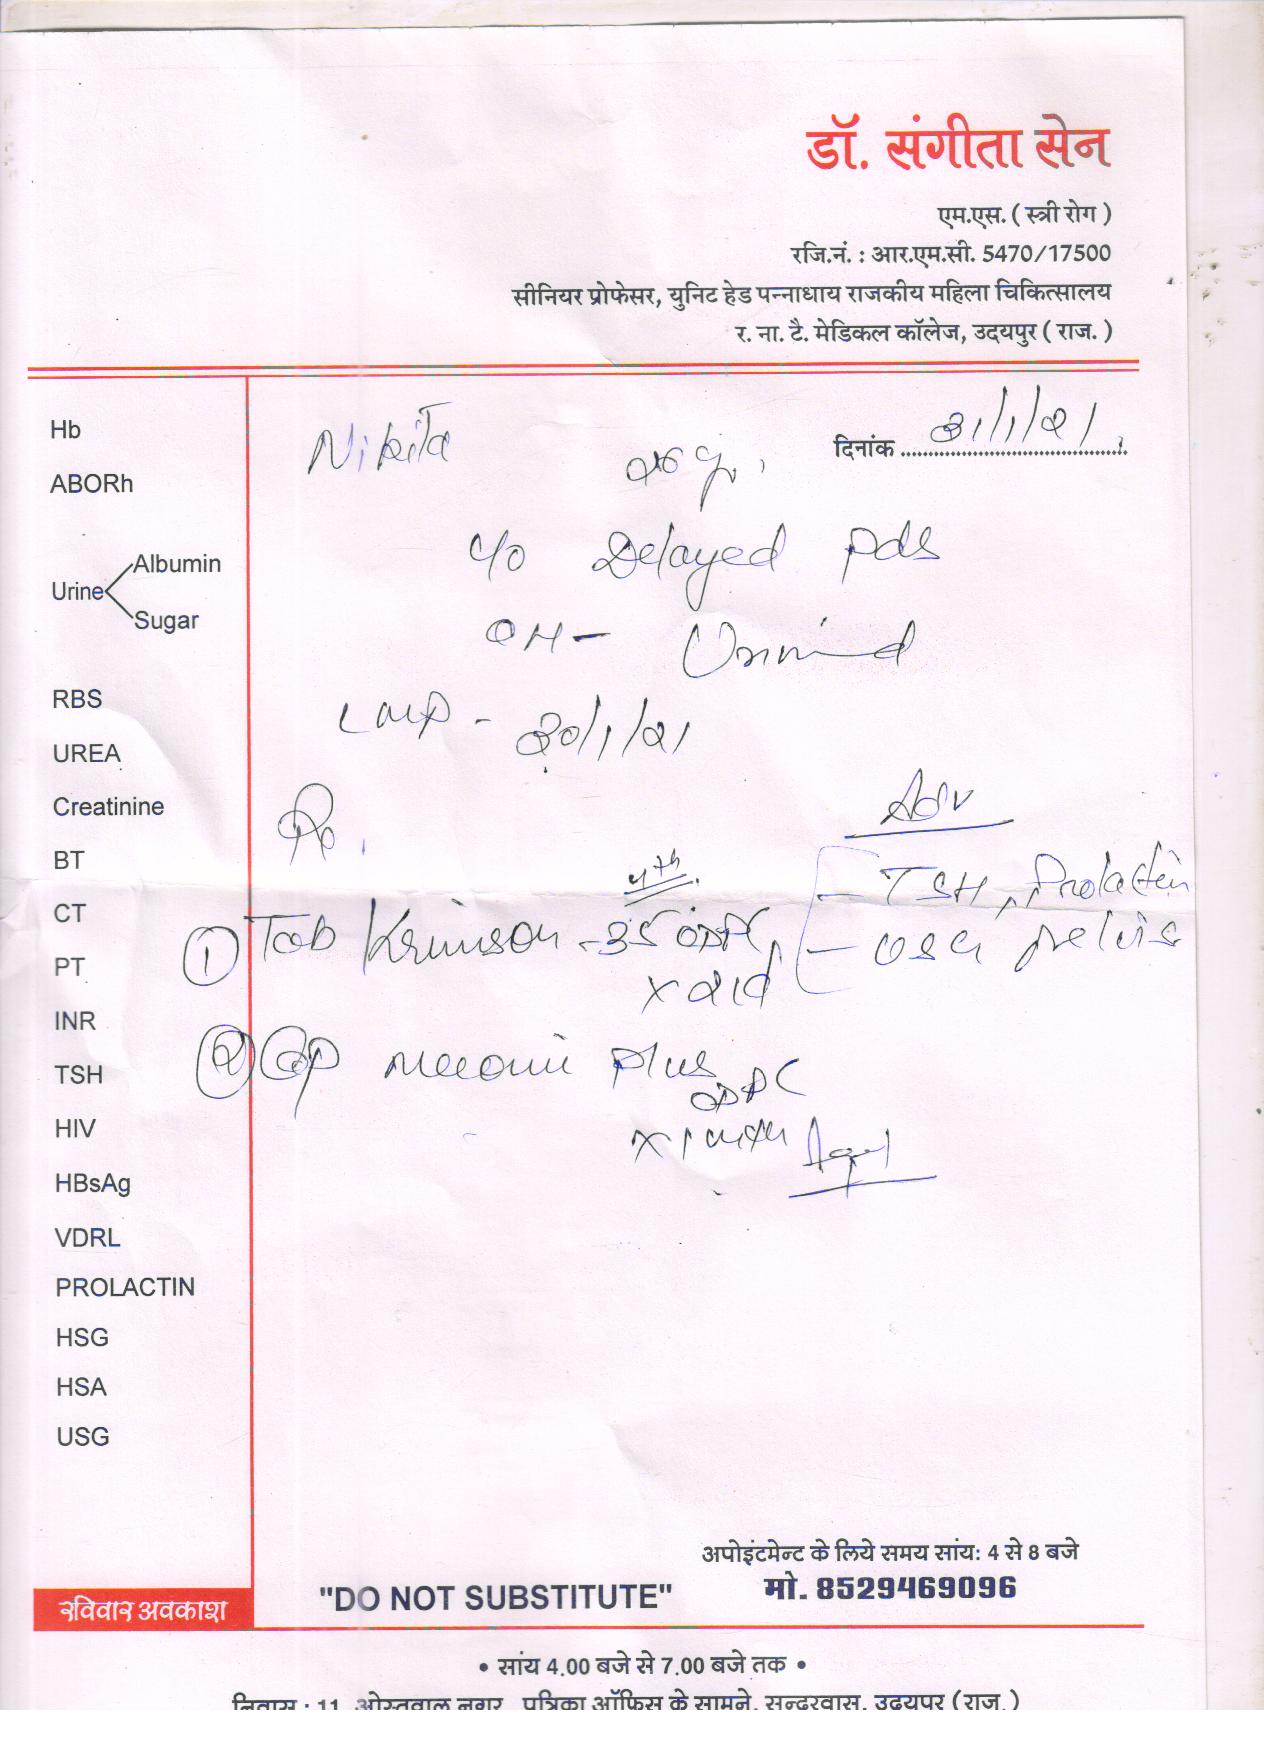 डॉ. संगीता सेन
एम.एस. ( स्त्री रोग )
रजि.नं. : आर.एम.सी. 5470/17500
सीनियर प्रोफेसर, युनिट हेड पन्नाधाय राजकीय महिला चिकित्सालय
र. ना. टै. मेडिकल कॉलेज, उदयपुर ( राज. )
Nikita
दिनांक 31/1/21
c/o Delayed pds
OH - Unmired
LMP - 30/1/21
Rx
Adv
- TSH, Prolactin
- USG pelvis
4th
① Tab Krimson - 35 ODPC
x 21d
② Cap Meconii Plus
ODPC
x 1 mth
Hb
ABORh
Urine
Albumin
Sugar
RBS
UREA
Creatinine
BT
CT
PT
INR
TSH
HIV
HBsAg
VDRL
PROLACTIN
HSG
HSA
USG
रविवार अवकाश
"DO NOT SUBSTITUTE"
अपोइंटमेन्ट के लिये समय सांय: 4 से 8 बजे
मो. 8529469096
• सांय 4.00 बजे से 7.00 बजे तक •
निवास : 11, ओस्तवाल नगर, पत्रिका ऑफिस के सामने, सुन्दरवास, उदयपुर (राज.)